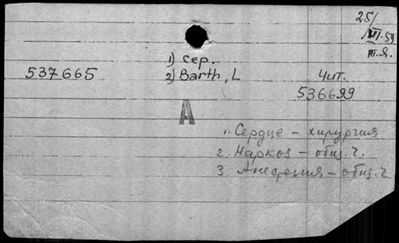 25/
VII.59
т.я.
1) сер.
537665
2) Barth, L
Чит.
536699
A
1. Сердце – хирургия
2. Наркоз – общ. ч.
3. Анестезия – общ. ч.